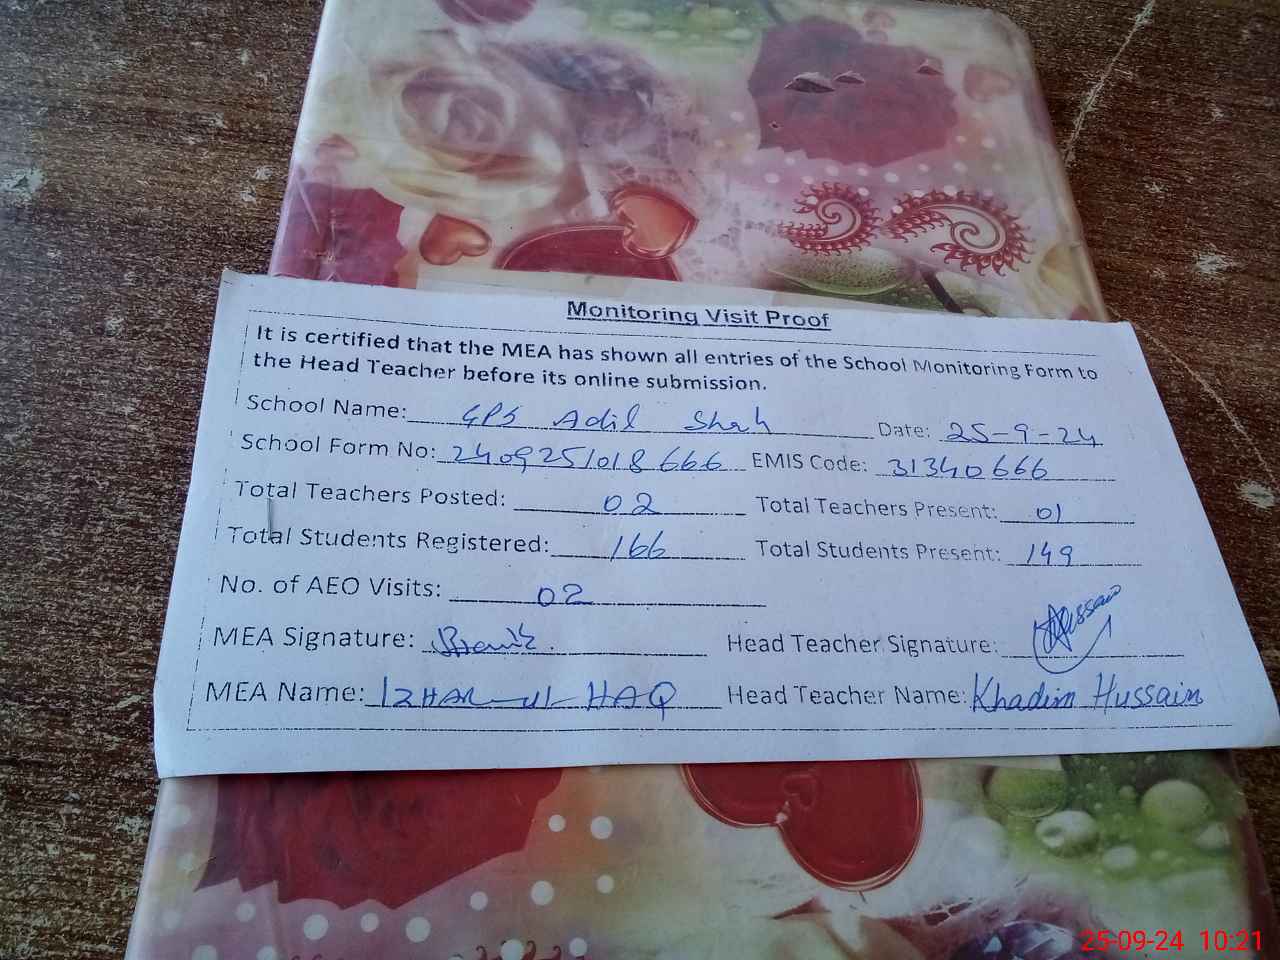 Monitoring Visit Proof
It is certified that the MEA has shown all entries of the School Monitoring Form to
the Head Teacher before its online submission.
School Name: GPS Adil Shah Date: 25-9-24
School Form No: 2409251018666 EMIS Code: 31340666
Total Teachers Posted: 02 Total Teachers Present: 01
Total Students Registered: 166 Total Students Present: 149
No. of AEO Visits: 02
MEA Signature: Head Teacher Signature: Hussain
MEA Name: IZHAR-ul-HAQ Head Teacher Name: Khadim Hussain
25-09-24 10:21